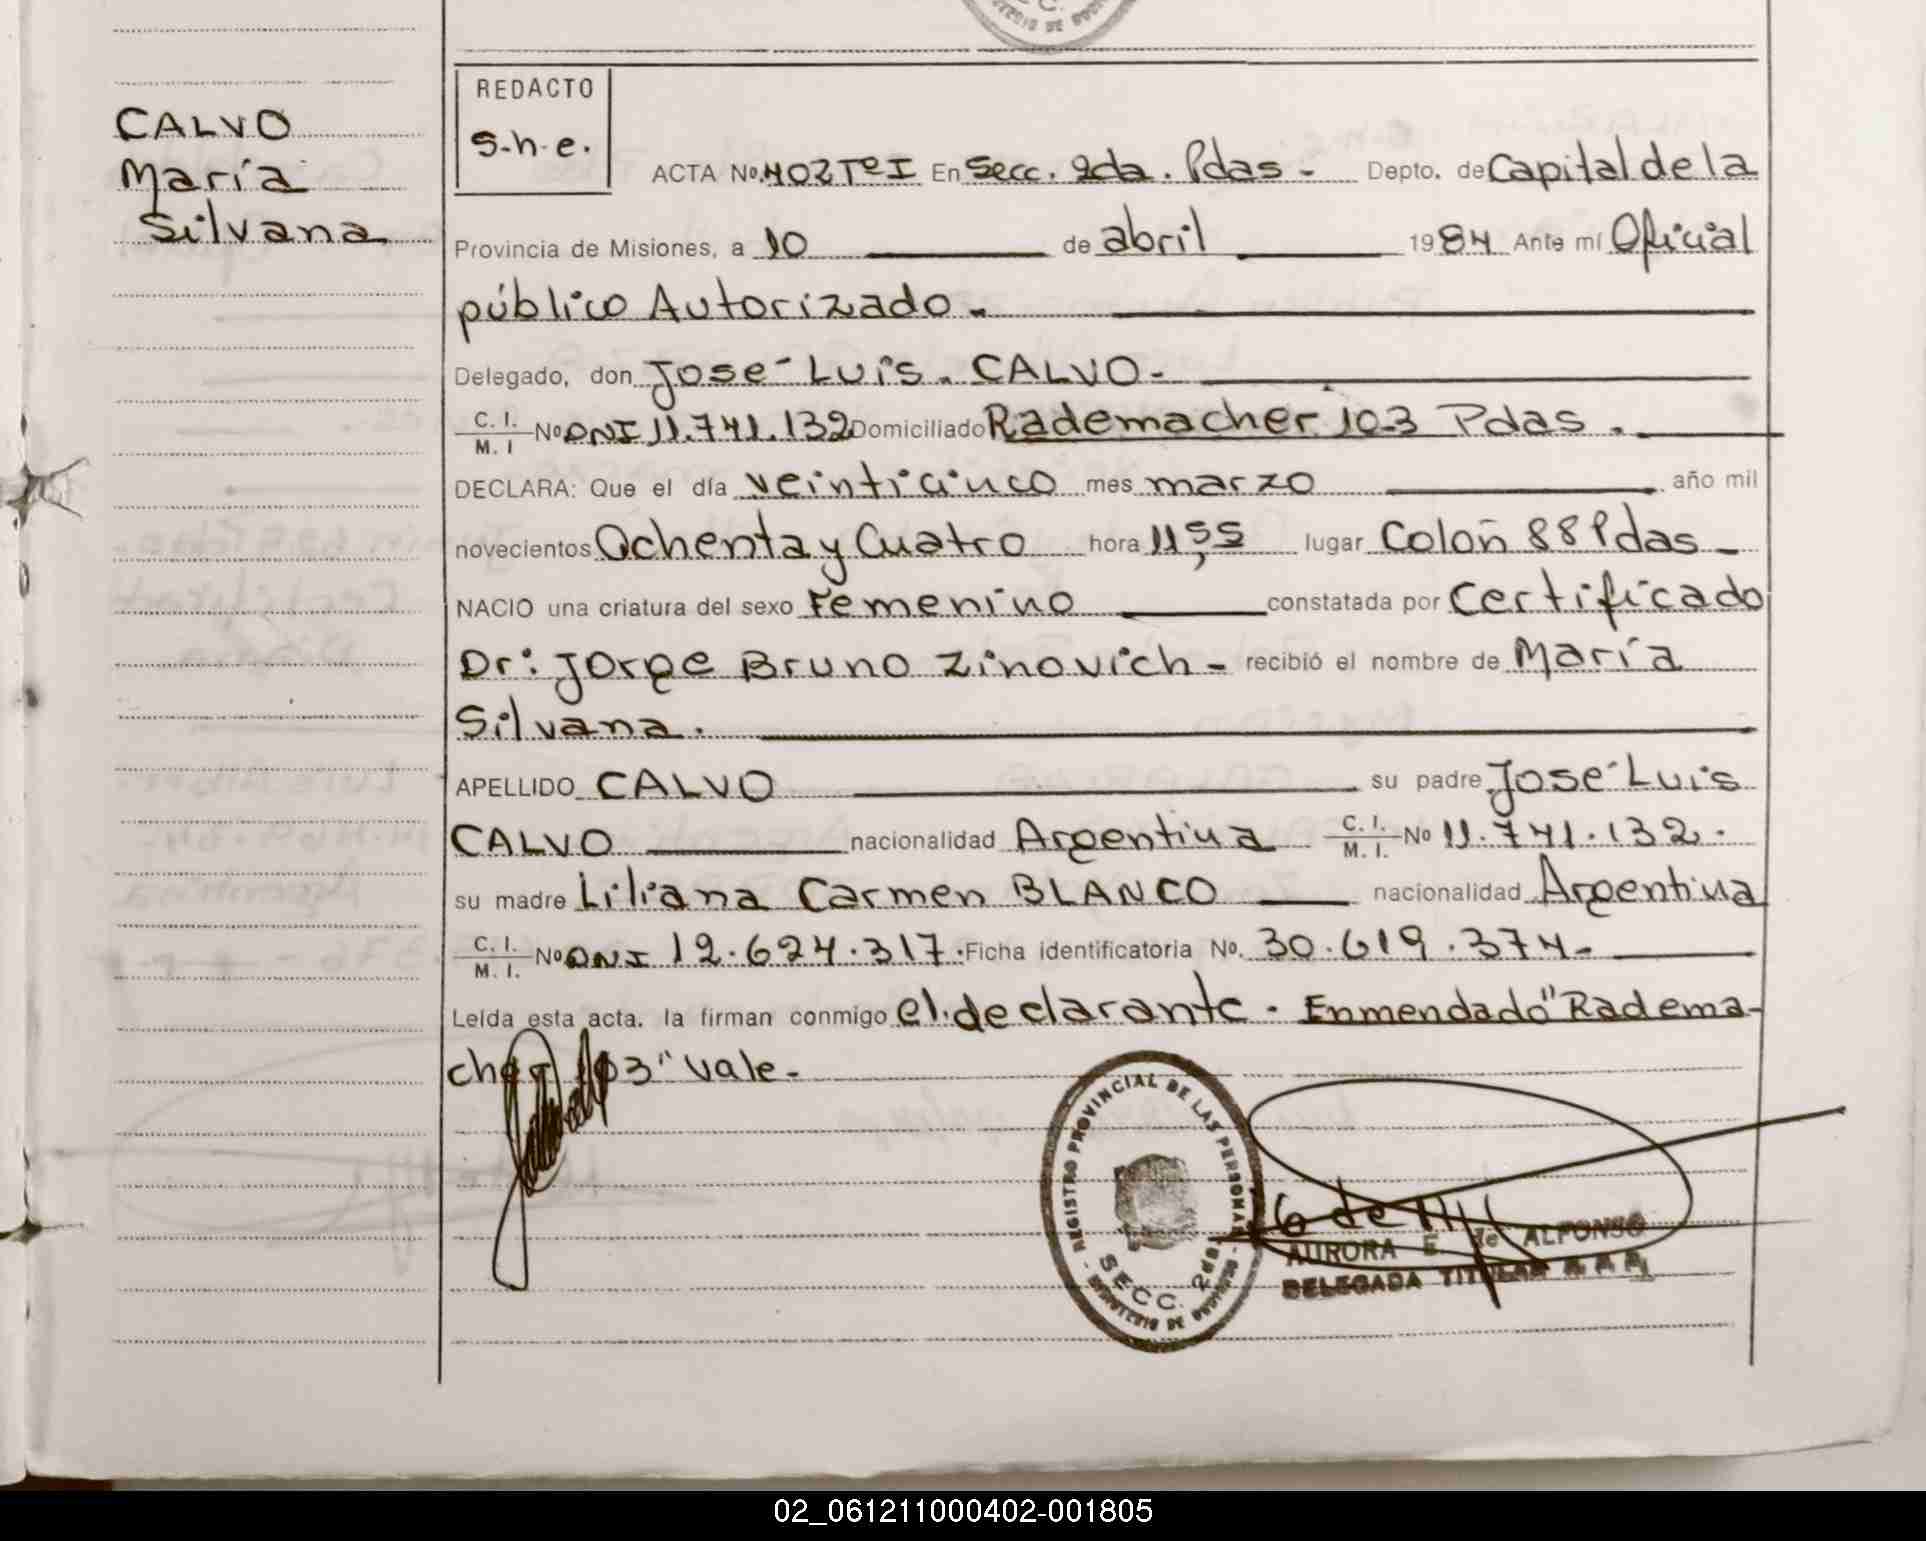 CALVO
María
Silvana
REDACTO
S.h.e.
ACTA No. 402 Tº I En Secc. 2da. Pdas - Depto. de Capital de la
Provincia de Misiones, a 10 de abril 1984 Ante mí Oficial
público Autorizado -
Delegado, don José Luis. CALVO -
C. I. / M. I No DNI 11.741.132 Domiciliado Rademacher 103 Pdas.
DECLARA: Que el día veinticinco mes marzo año mil
novecientos Ochenta y Cuatro hora 11,55 lugar Colón 88 Pdas -
NACIO una criatura del sexo Femenino constatada por Certificado
Dr: Jorge Bruno Zinovich - recibió el nombre de María
Silvana.
APELLIDO CALVO su padre José Luis
CALVO nacionalidad Argentina C. I. / M. I. No 11.741.132.
su madre Liliana Carmen BLANCO nacionalidad Argentina
C. I. / M. I. No DNI 12.624.317. Ficha identificatoria No. 30.619.374 -
Leída esta acta. la firman conmigo el declarante - Enmendado "Radema-
cher 103" Vale -
REGISTRO PROVINCIAL DE LAS PERSONAS
SECC. 2da
AURORA E. de ALFONSO
DELEGADA TITULAR
02_061211000402-001805